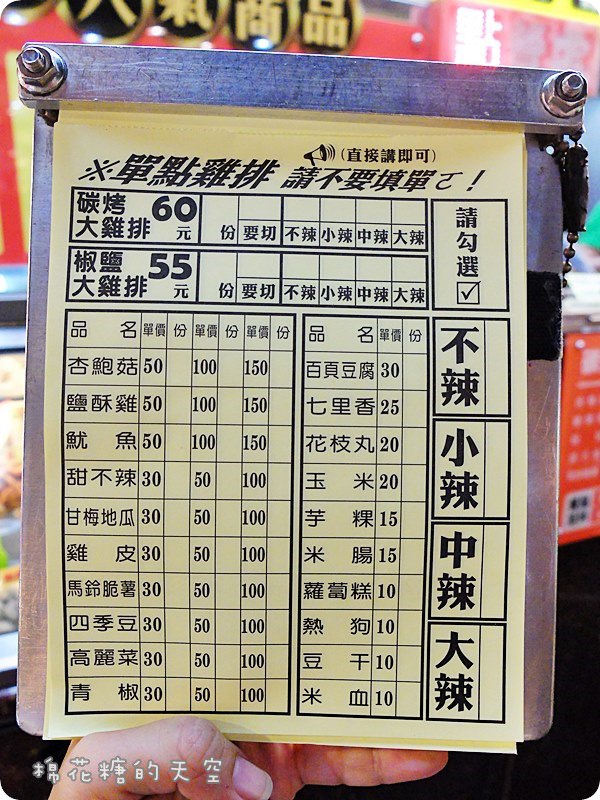 人氣商品
(直接講即可)
※單點雞排 請不要填單ㄛ！
碳烤大雞排 60元 份 要切 不辣 小辣 中辣 大辣
椒鹽大雞排 55元 份 要切 不辣 小辣 中辣 大辣
請勾選☑
品名 單價 份 單價 份 單價 份
杏鮑菇 50 100 150
鹽酥雞 50 100 150
魷魚 50 100 150
甜不辣 30 50 100
甘梅地瓜 30 50 100
雞皮 30 50 100
馬鈴脆薯 30 50 100
四季豆 30 50 100
高麗菜 30 50 100
青椒 30 50 100
品名 單價 份
百頁豆腐 30
七里香 25
花枝丸 20
玉米 20
芋粿 15
米腸 15
蘿蔔糕 10
熱狗 10
豆干 10
米血 10
不辣
小辣
中辣
大辣
棉花糖的天空